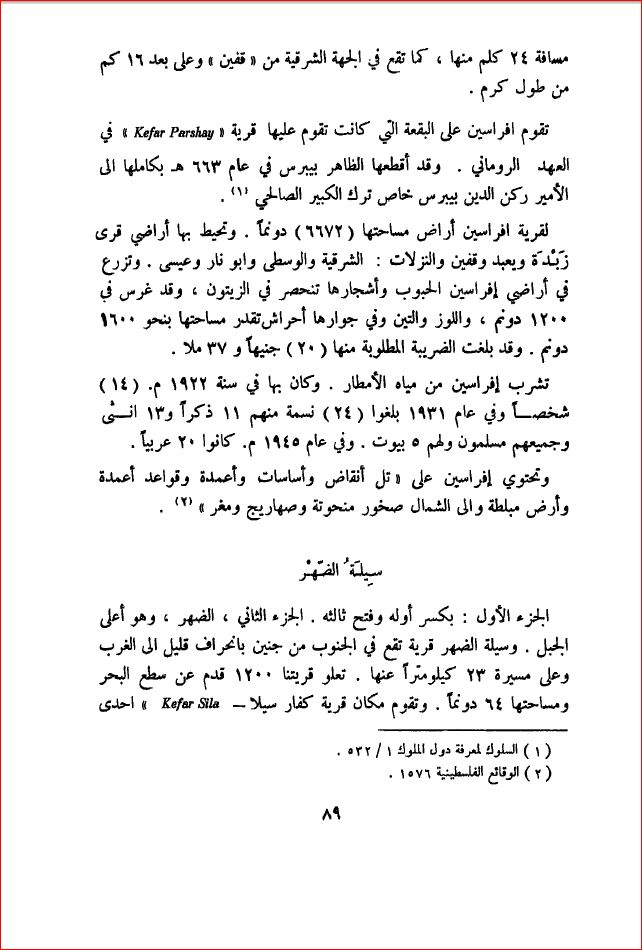 مسافة ٢٤ كلم منها ، كما تقع في الجهة الشرقية من « قفين » وعلى بعد ١٦ كم
من طول كرم .
تقوم افراسين على البقعة التي كانت تقوم عليها قرية « Kefar Parshay » في
العهد الروماني . وقد أقطعها الظاهر بيبرس في عام ٦٦٣ هـ بكاملها الى
الأمير ركن الدين بيبرس خاص ترك الكبير الصالحي (١) .
لقرية افراسين أراض مساحتها ( ٦٦٧٢ ) دونماً . وتحيط بها أراضي قرى
زَبْدَة ويعبد وقفين والنزلات : الشرقية والوسطى وابو نار وعيسى . وتزرع
في أراضي إفراسين الحبوب وأشجارها تنحصر في الزيتون ، وقد غرس في
١٢٠٠ دونم ، واللوز والتين وفي جوارها أحراش تقدر مساحتها بنحو ١٦٠٠
دونم . وقد بلغت الضريبة المطلوبة منها ( ٢٠ ) جنيهاً و ٣٧ ملا .
تشرب إفراسين من مياه الأمطار . وكان بها في سنة ١٩٢٢ م. ( ١٤ )
شخصـــاً وفي عام ١٩٣١ بلغوا ( ٢٤ ) نسمة منهم ١١ ذكراً و١٣ انــثى
وجميعهم مسلمون ولهم ٥ بيوت . وفي عام ١٩٤٥ م. كانوا ٢٠ عربياً .
وتحتوي إفراسين على « تل أنقاض وأساسات وأعمدة وقواعد أعمدة
وأرض مبلطة والى الشمال صخور منحوتة وصهاريج ومغر » (٢) .
سِيلَةُ الضَّهْر
الجزء الأول : بكسر أوله وفتح ثالثه . الجزء الثاني ، الضهر ، وهو أعلى
الجبل . وسيلة الضهر قرية تقع في الجنوب من جنين بانحراف قليل الى الغرب
وعلى مسيرة ٢٣ كيلومتراً عنها . تعلو قريتنا ١٢٠٠ قدم عن سطع البحر
ومساحتها ٦٤ دونماً . وتقوم مكان قرية كفار سيلا – Kefar Sila » احدى
( ١ ) السلوك لمعرفة دول الملوك ١ / ٥٣٢ .
( ٢ ) الوقائع الفلسطينية ١٥٧٦ .
٨٩